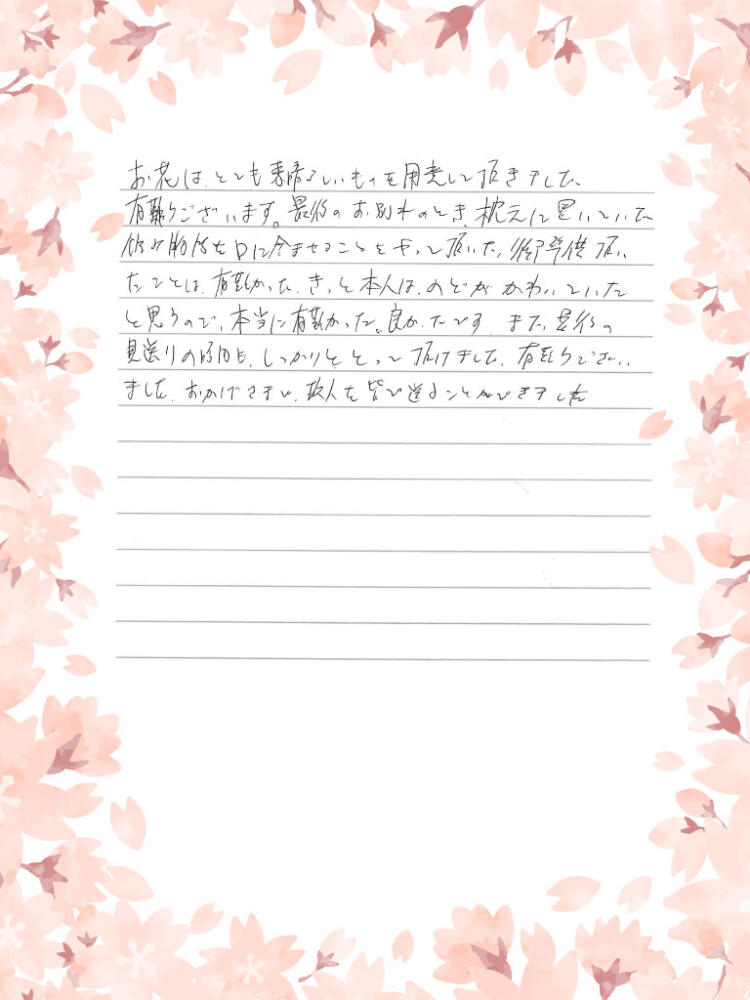 お花は、とても素晴らしいものを用意して頂きました。
有難うございます。最後のお別れのとき、枕元に置いていた
を口に含ませることをやって頂いた、準備頂い
たことは、有難かった。きっと本人は、のどがかわいていた
と思うので、本当に有難かった。良かったです。また、最後の
見送りの時間も、しっかりととって頂けました。有難うござい
ました。おかげさまで、故人を皆で送ることができました